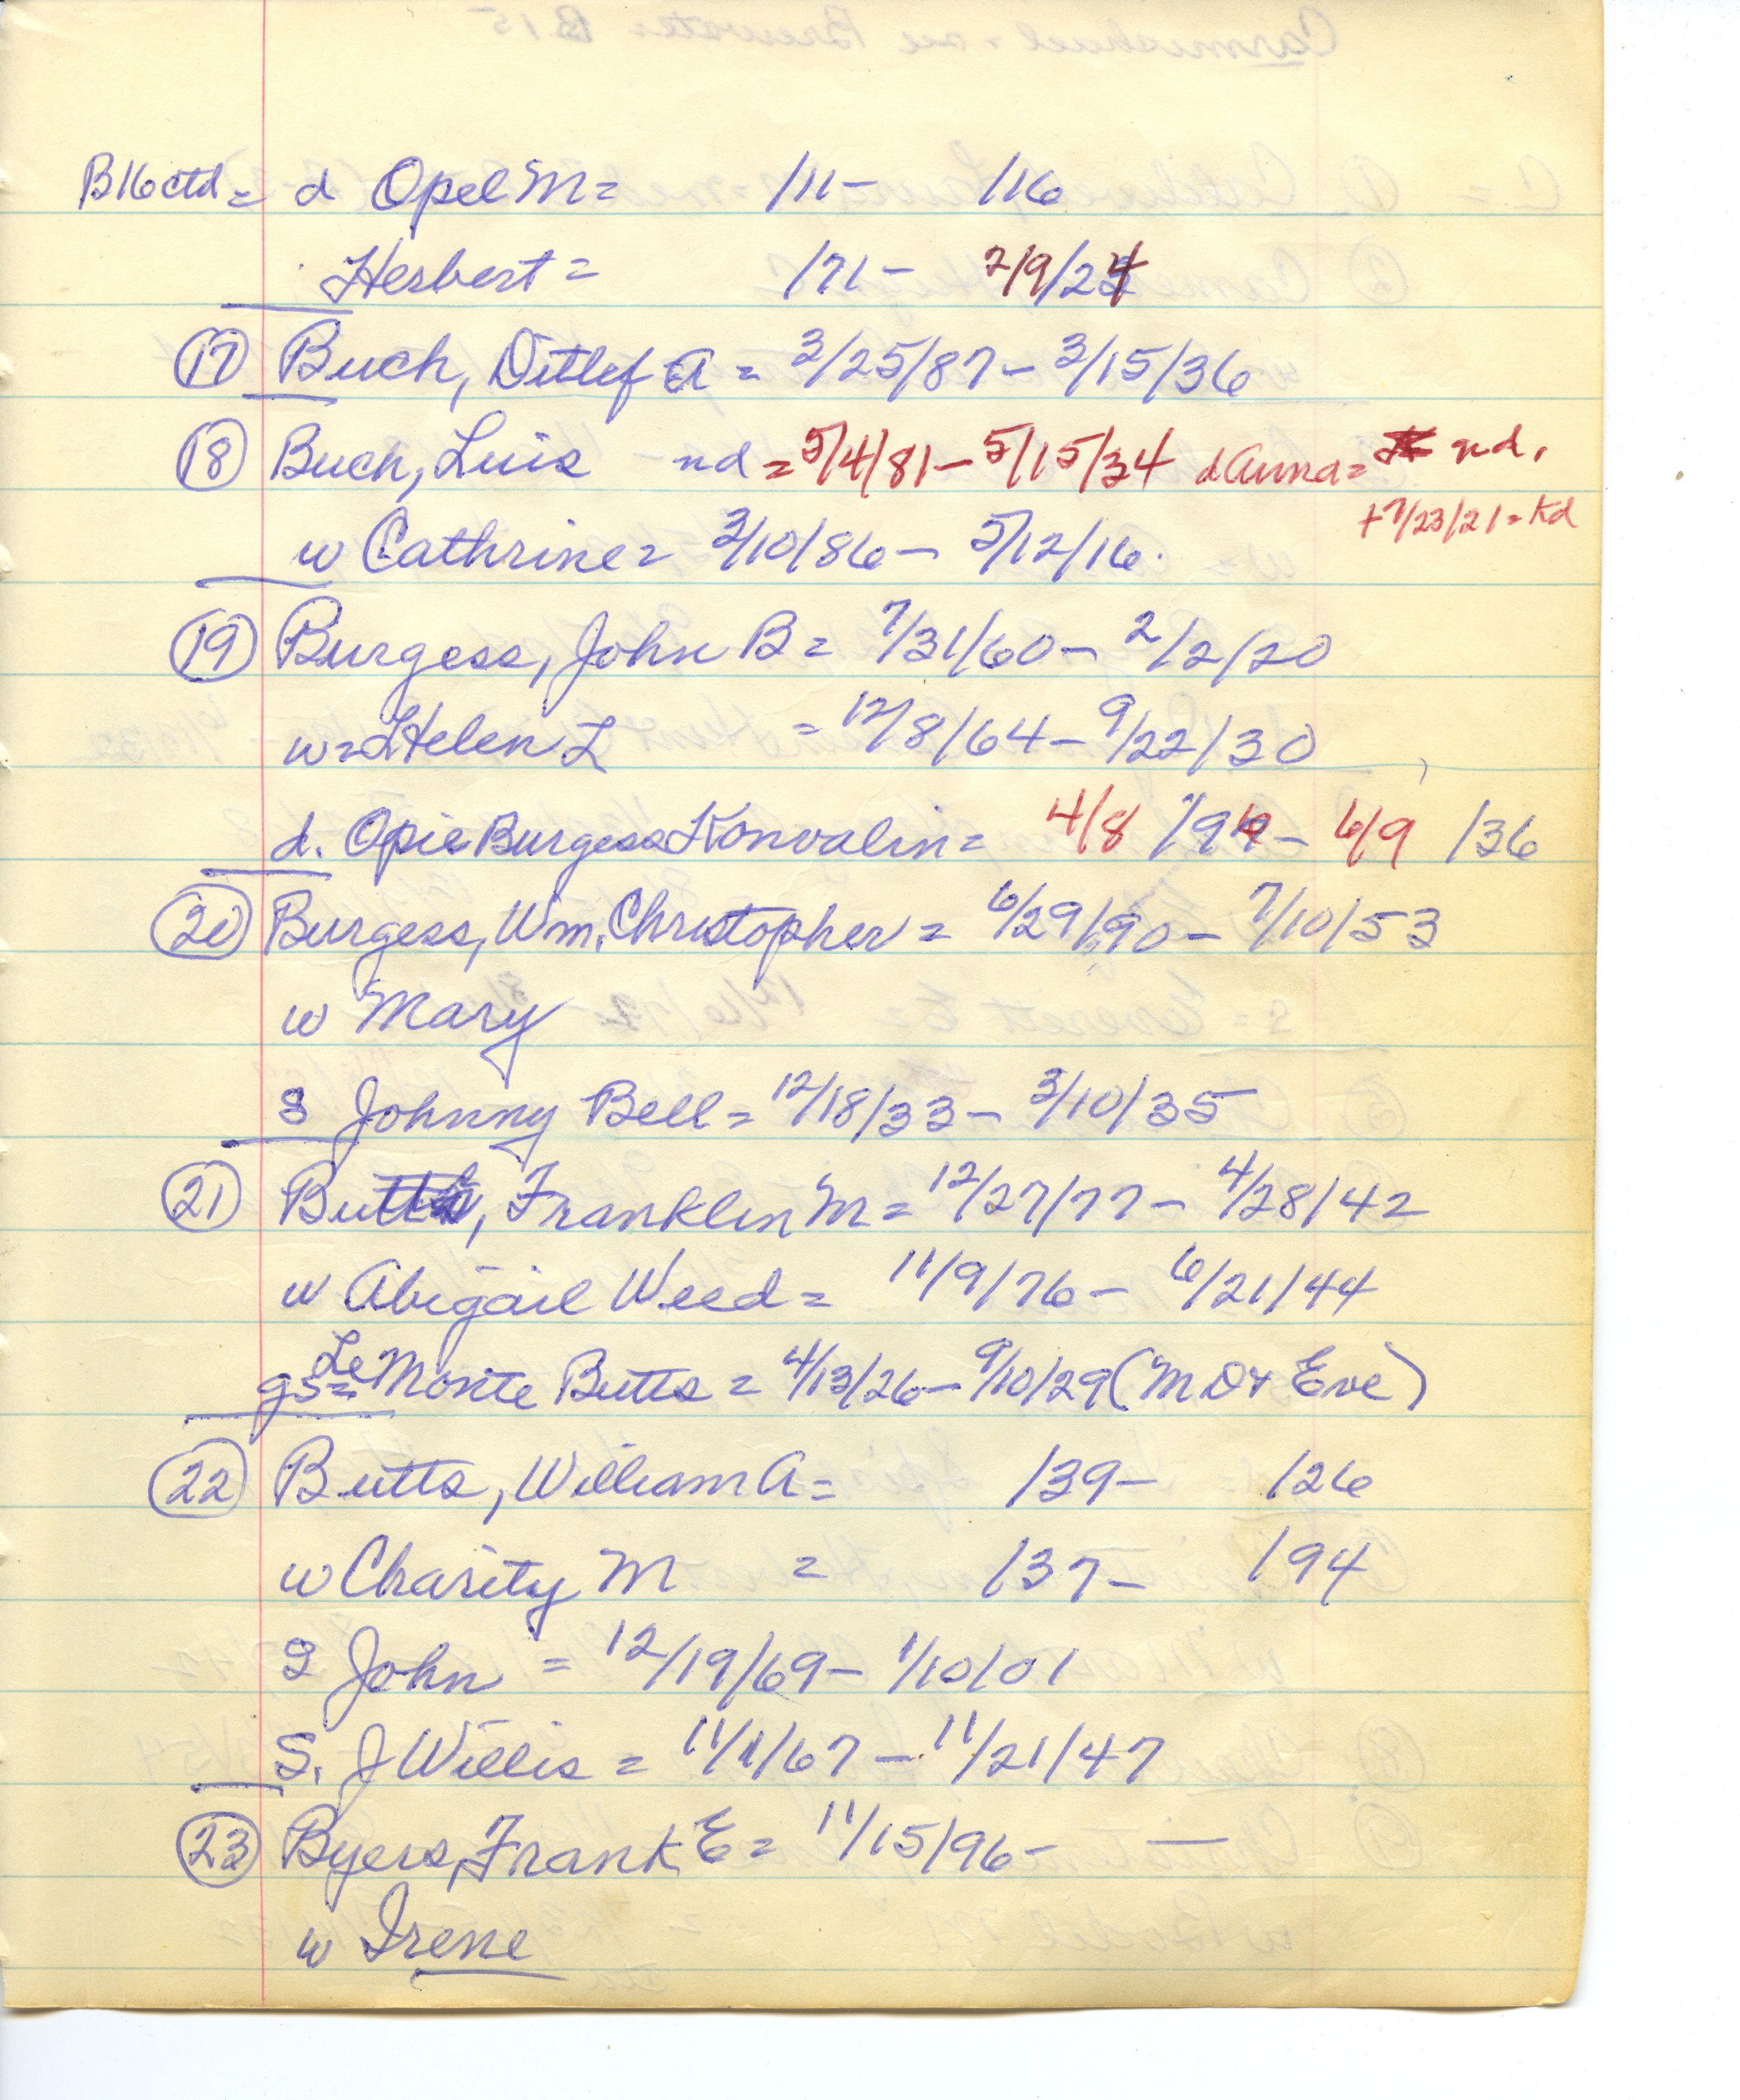 B16 ctd = d Opel M = /11 - /16
Herbert = /71 - 2/9/24
(17) Buch, Ditlef A = 3/25/87 - 3/15/36
(18) Buch, Luis nd = 5/4/81 - 5/15/34 d Anna = nd.
+ 7/23/21 = Kd
w Cathrine = 3/10/86 - 5/12/16.
(19) Burgess, John B = 7/31/60 - 2/2/20
w = Helen L = 12/8/64 - 9/22/30
d. Opie Burgess Konvalin = 4/8 /94 - 6/9 /36
(20) Burgess, Wm. Christopher = 6/29/90 - 7/10/53
w Mary
S Johnny Bell = 12/18/33 - 3/10/35
(21) Butts, Franklin M = 12/27/77 - 4/28/42
w Abigail Weed = 11/9/76 - 6/21/44
gs = Le Monte Butts = 4/13/26 - 9/10/29 (M D + Eve)
(22) Butts, William A = /39 - /26
w Charity M = /37 - /94
S John = 12/19/69 - 1/10/01
S. J Willis = 11/1/67 - 11/21/47
(23) Byers, Frank E = 11/15/96 - —
w Irene